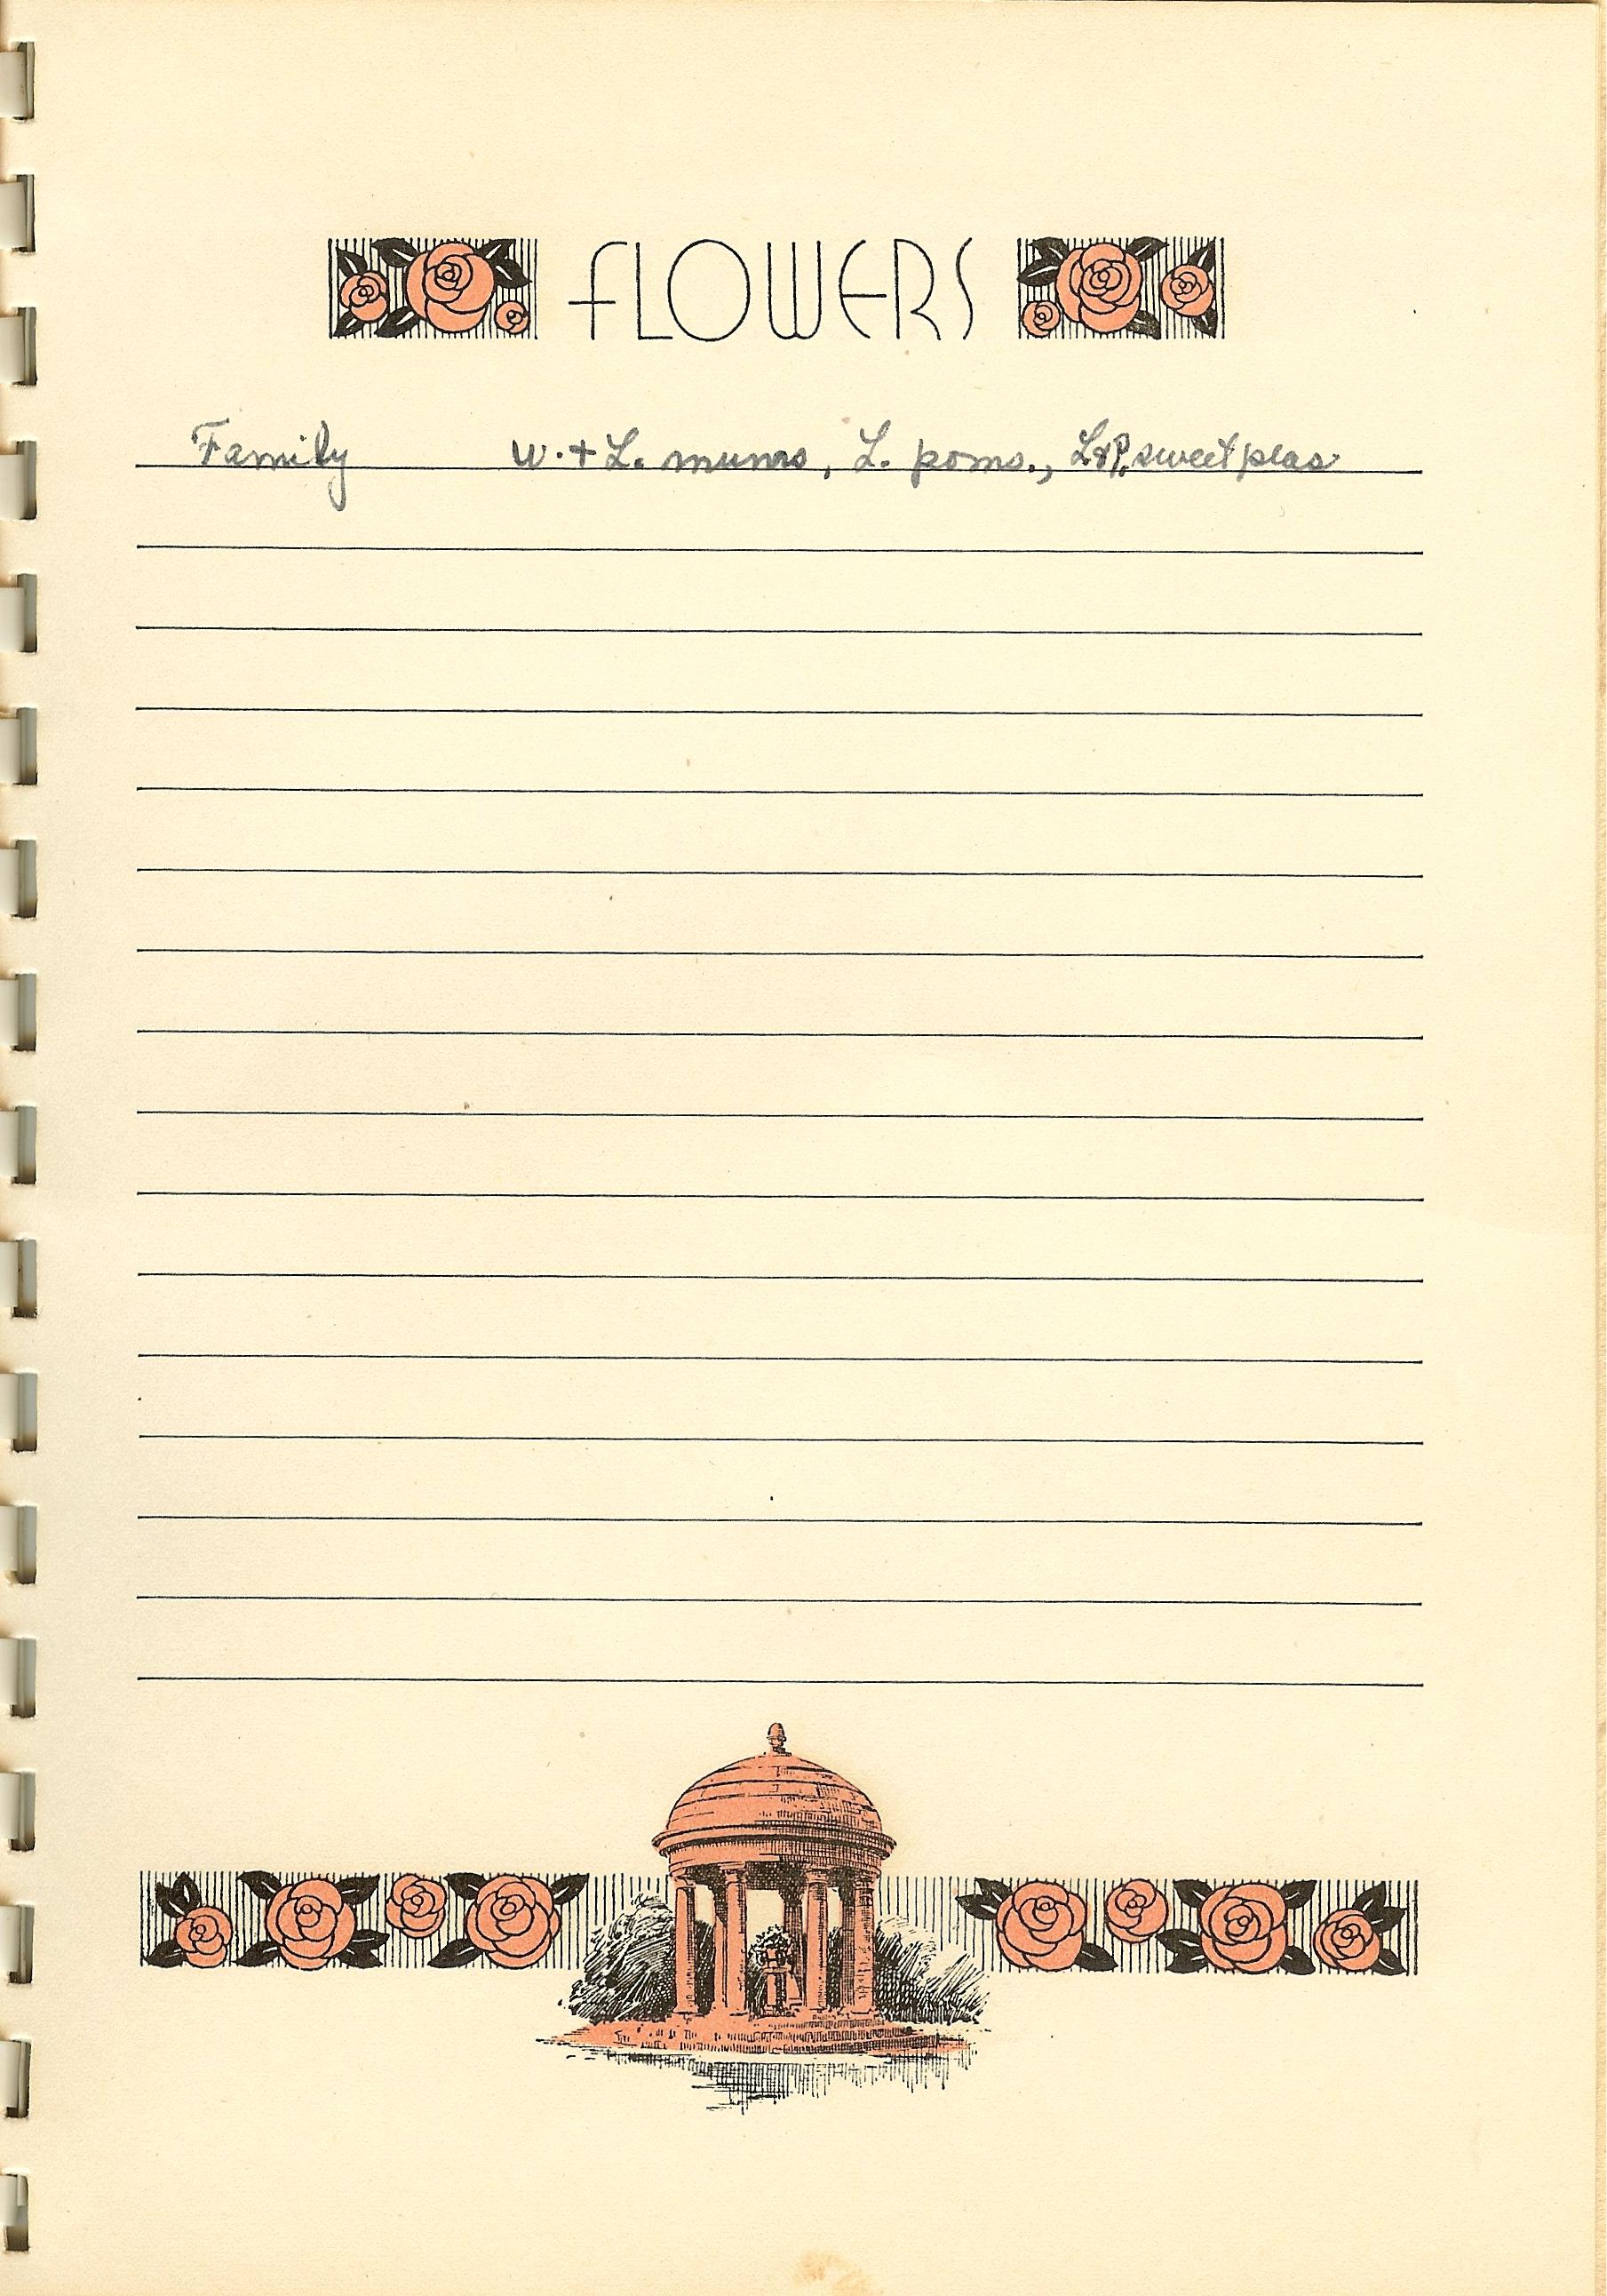 FLOWERS
Family W. + L. mums, L. poms., L&P. sweet peas